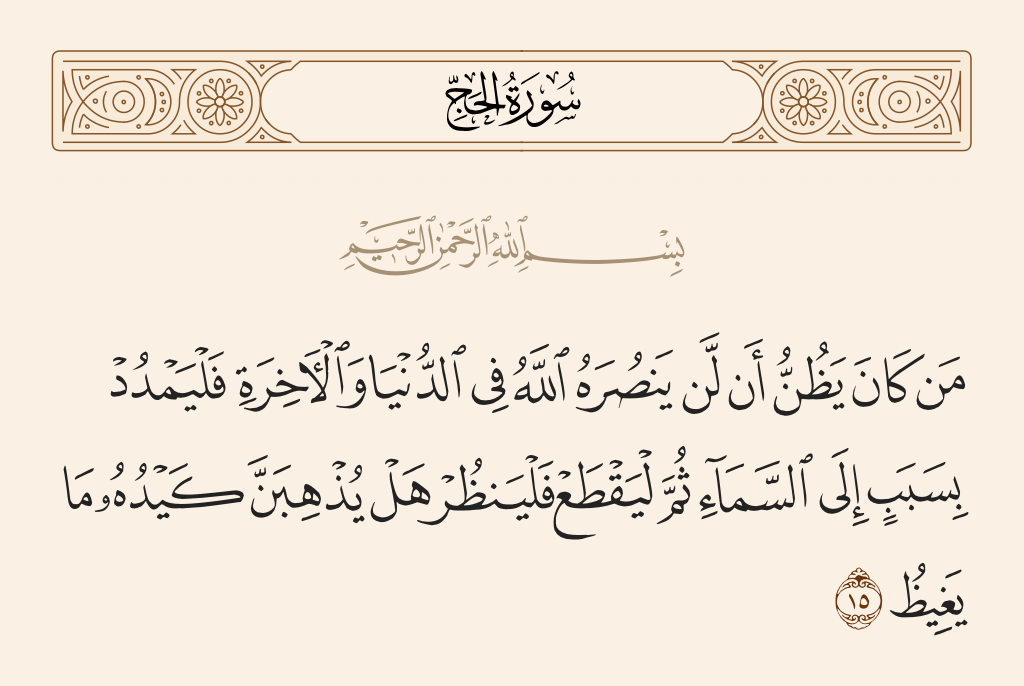 سُورَةُ الحَجِّ
بِسْمِ ٱللَّهِ ٱلرَّحْمَٰنِ ٱلرَّحِيمِ
مَن كَانَ يَظُنُّ أَن لَّن يَنصُرَهُ ٱللَّهُ فِى ٱلدُّنْيَا وَٱلْأَخِرَةِ فَلْيَمْدُدْ
بِسَبَبٍ إِلَى ٱلسَّمَآءِ ثُمَّ لْيَقْطَعْ فَلْيَنظُرْ هَلْ يُذْهِبَنَّ كَيْدُهُۥ مَا
يَغِيظُ ١٥